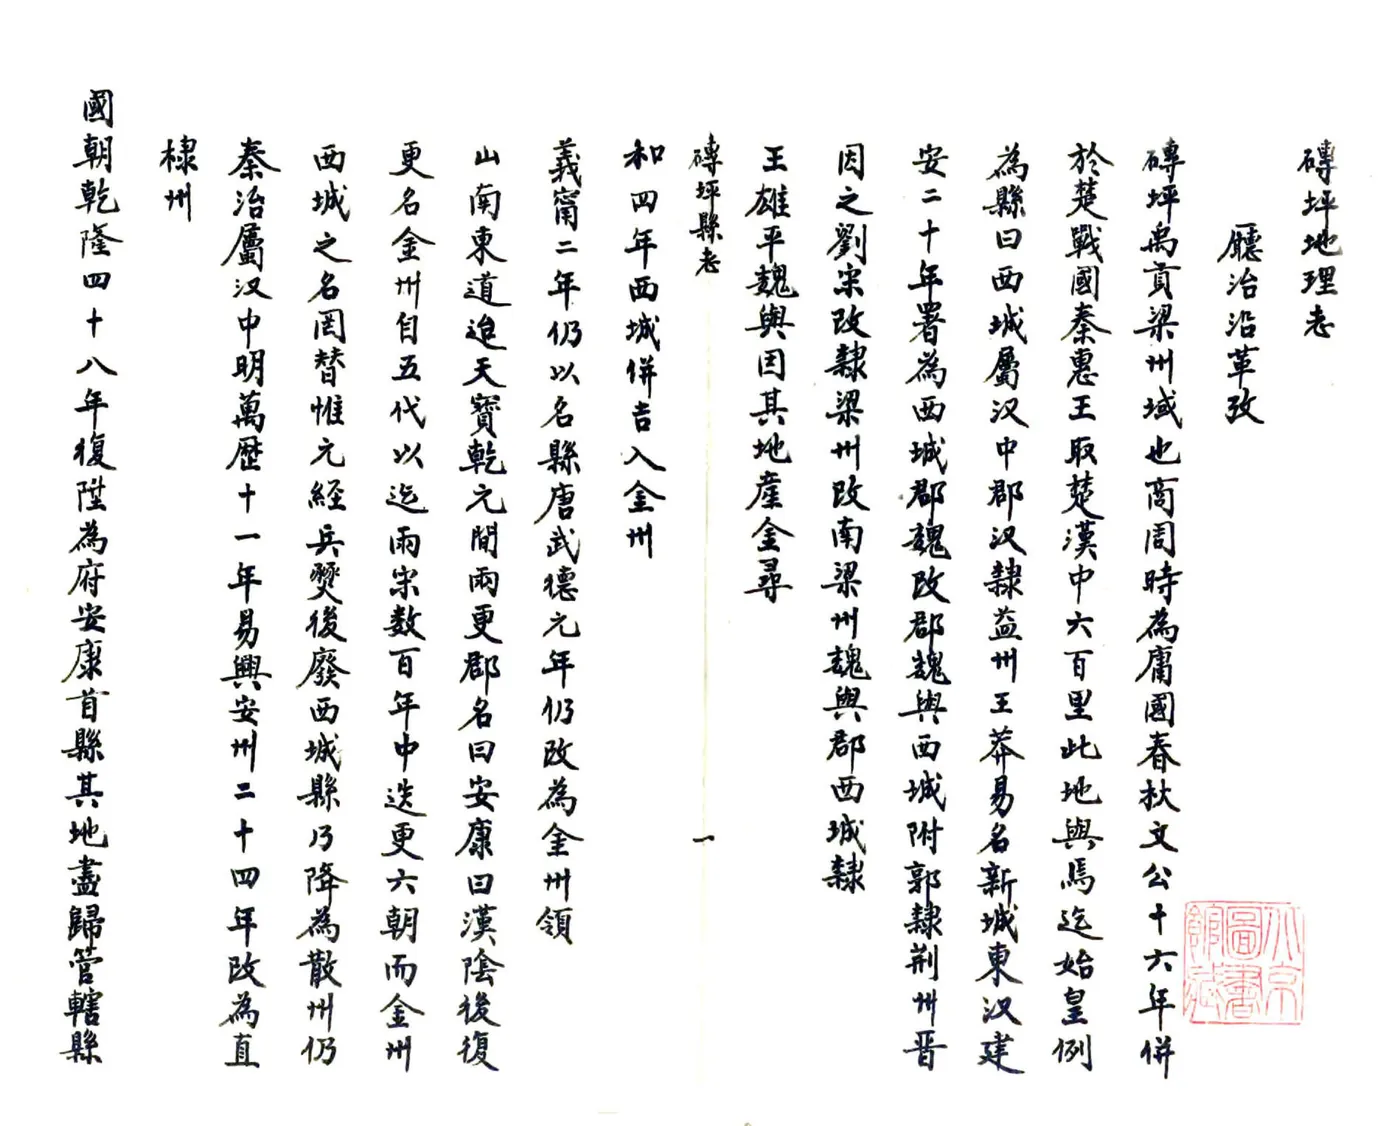 磚坪地理志
廳治沿革攷
磚坪禹貢梁州域也商周時為庸國春秋文公十六年併
於楚戰國秦惠王取楚漢中六百里此地與焉迄始皇例
為縣曰西城屬汉中郡汉隸益州王莽易名新城東汉建
安二十年署為西城郡魏改郡魏興西城附郭隸荆州晋
因之劉宋改隸梁州改南梁州魏興郡西城隸
王雄平魏興因其地産金尋
磚坪縣志
一
和四年西城併吉入金州
義甯二年仍以名縣唐武德元年仍改為金州領
山南東道迨天寶乾元間兩更郡名曰安康曰漢陰後復
更名金州自五代以迄兩宋数百年中迭更六朝而金州
西城之名罔替惟元經兵燹後廢西城縣乃降為散州仍
秦治屬汉中明萬歷十一年易興安州二十四年改為直
棣州
國朝乾隆四十八年復陞為府安康首縣其地盡歸管轄縣
北京
圖書
館藏